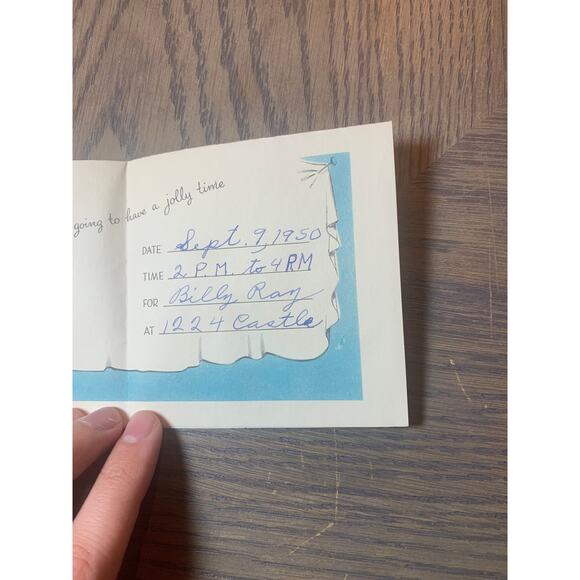 going to have a jolly time
DATE Sept. 9, 1950
TIME 2 P.M. to 4 P.M
FOR Billy Ray
AT 1224 Castle